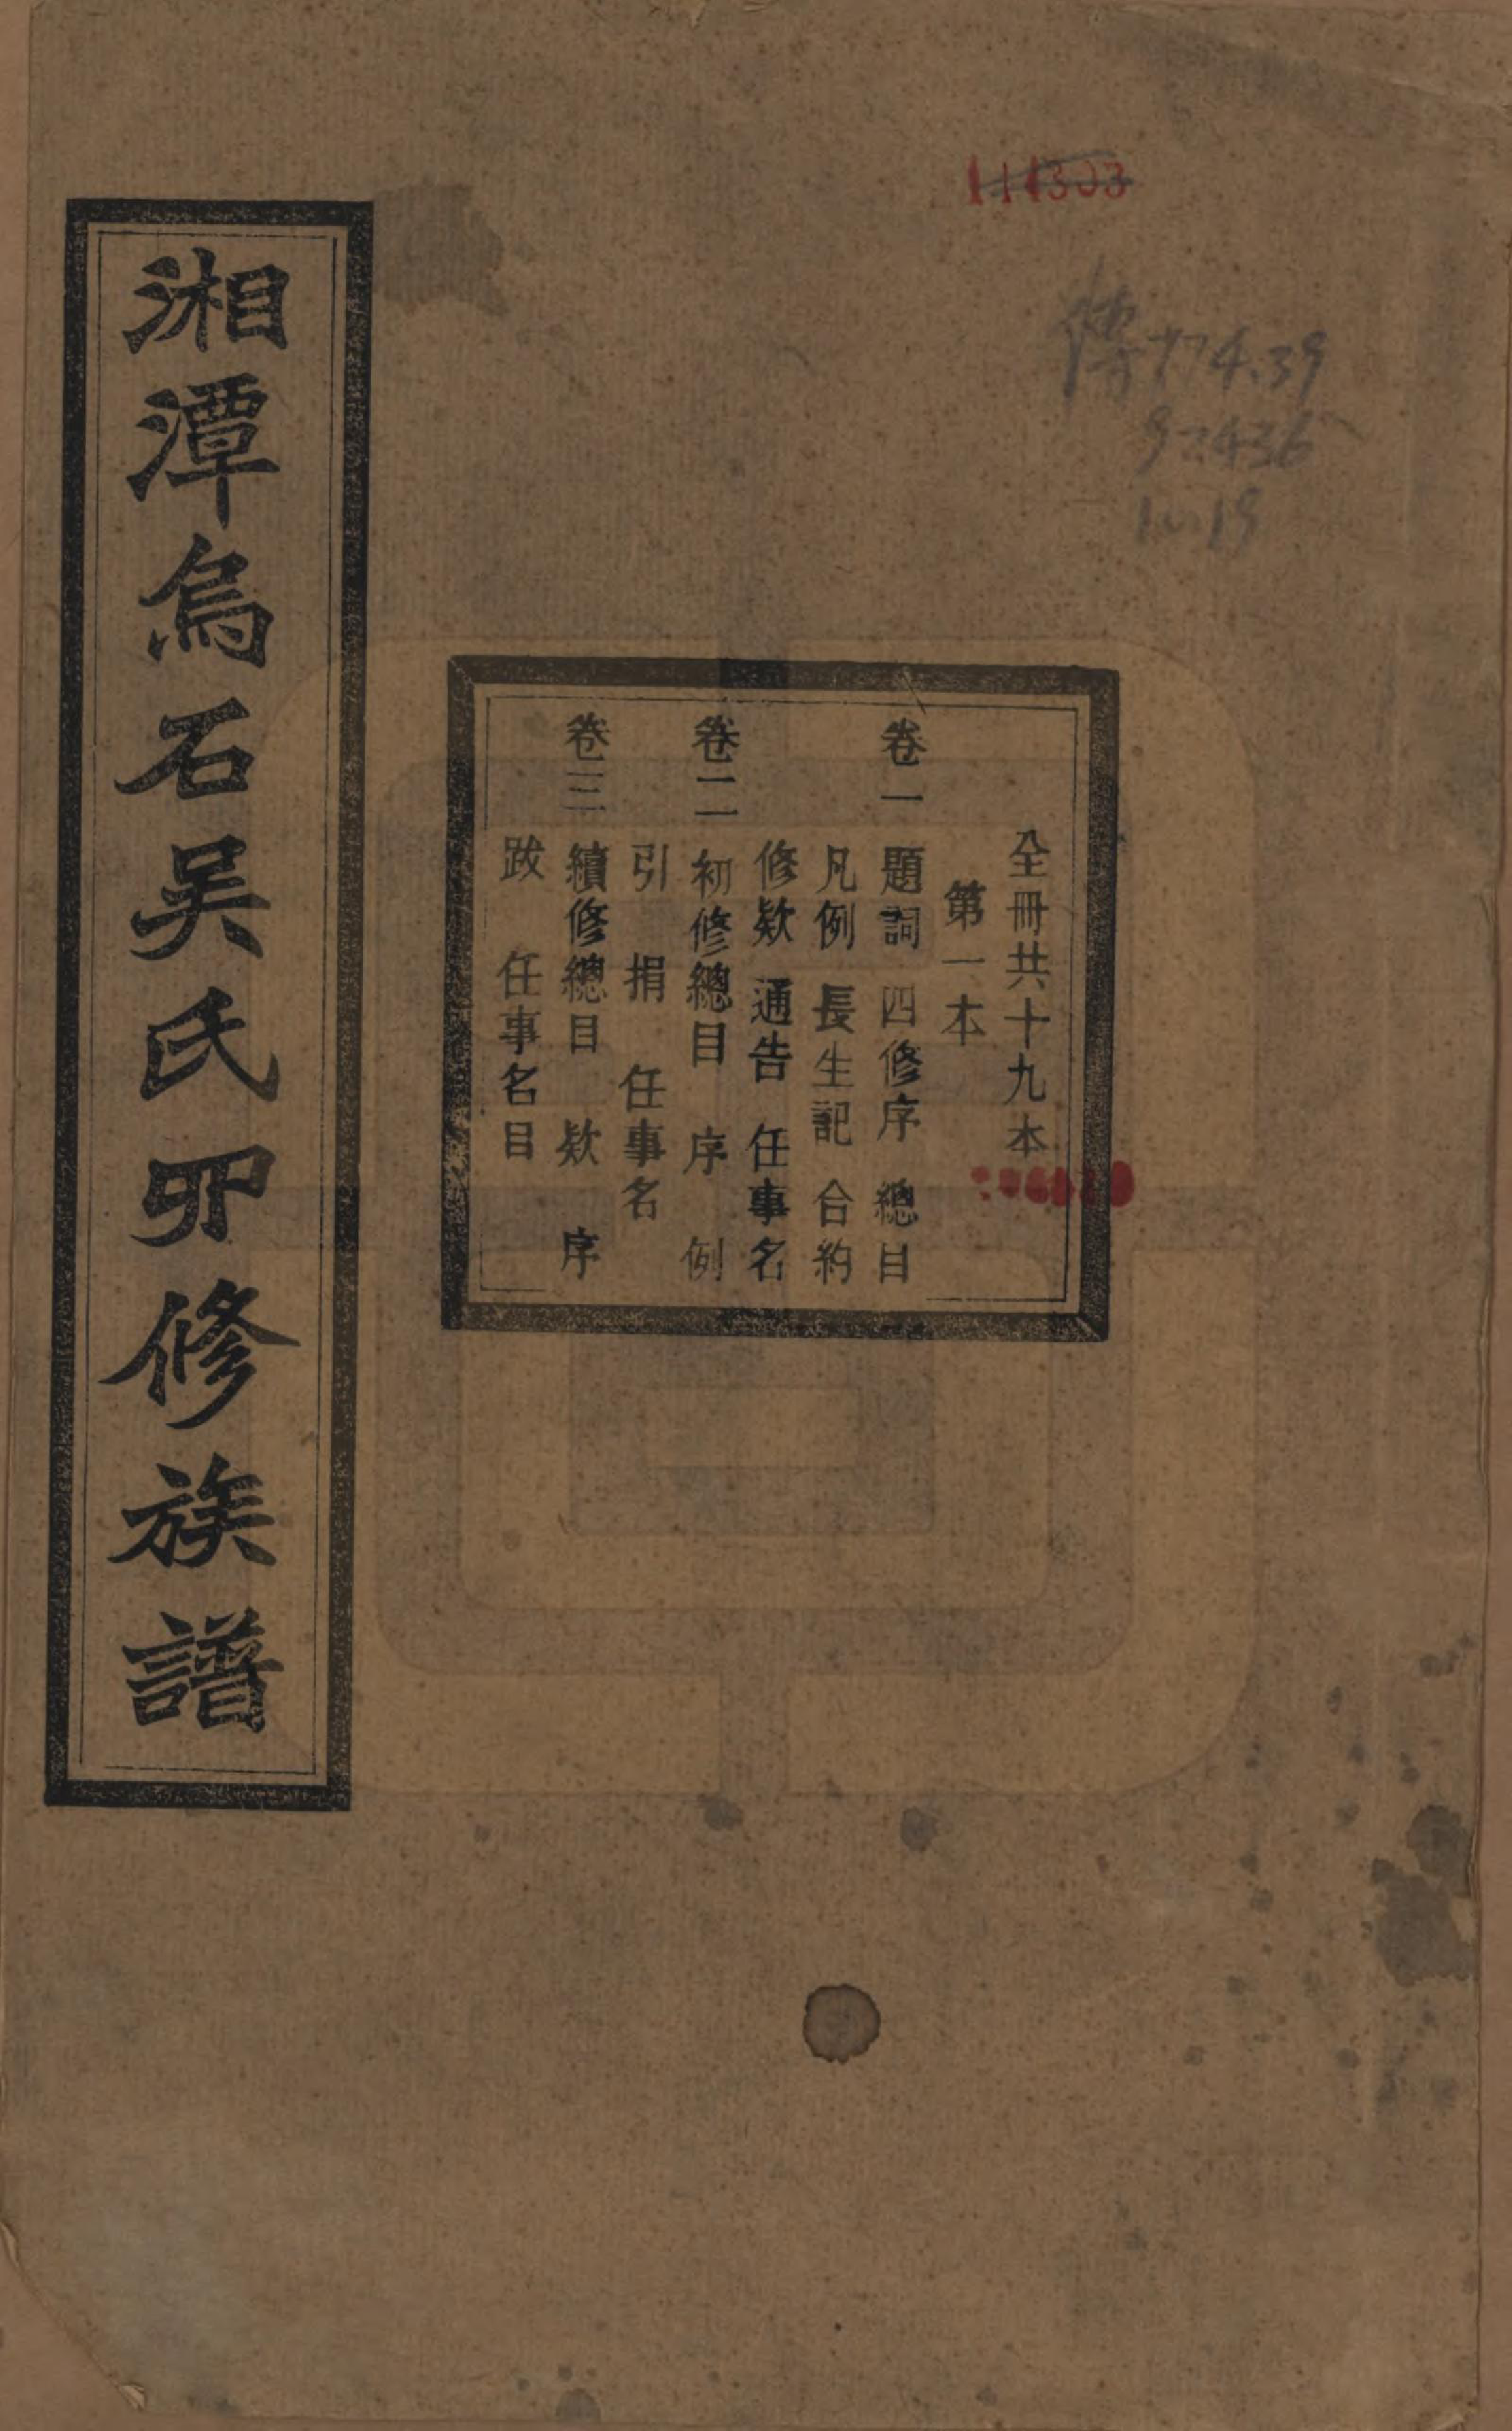 湘潭烏石吳氏四修族譜
全冊共十九本
第一本
卷一 題詞 四修序 總目
凡例 長生記 合約
修欵 通告 任事名
卷二 初修總目 序 例
引 捐 任事名
卷三 續修總目 欵 序
跋 任事名目
111303
傳774.39